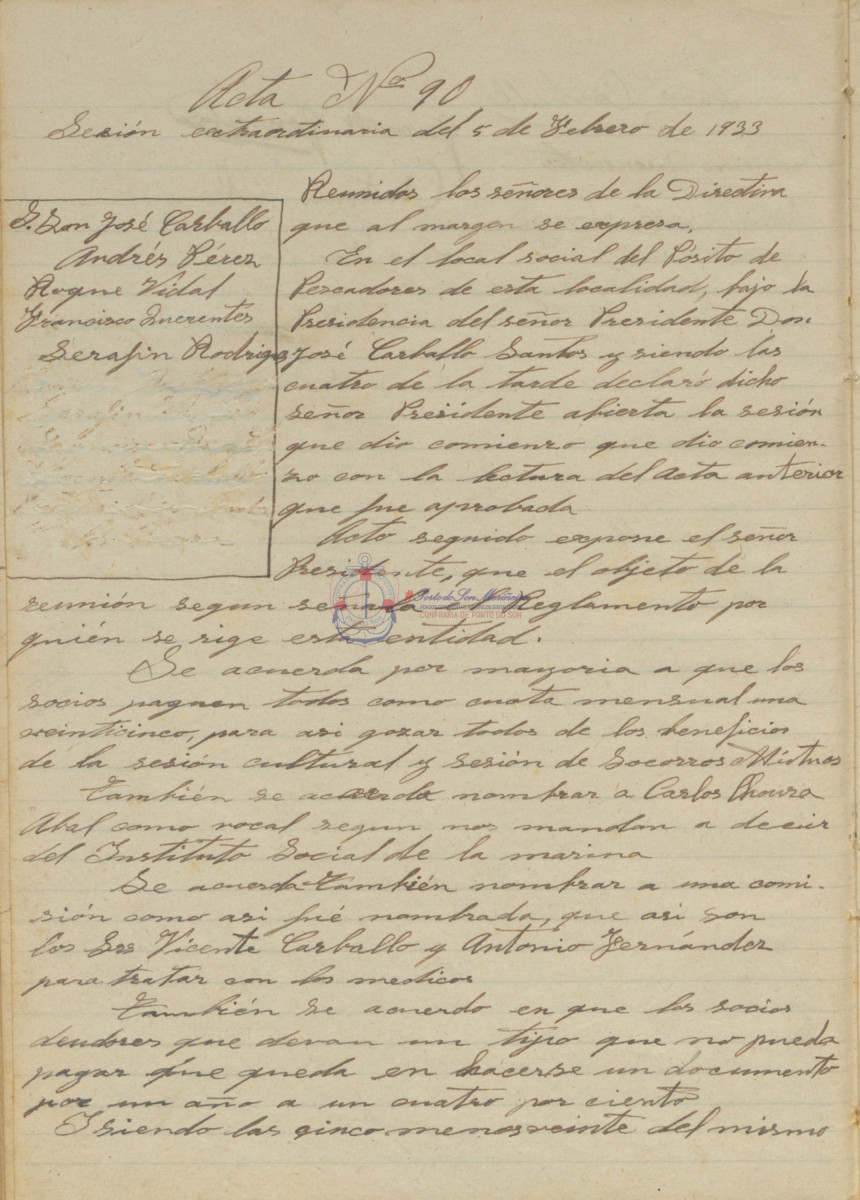 Acta Nº 90
Sesión extraordinaria del 5 de Febrero de 1933
Reunidos los señores de la Directiva
que al margen se expresa.
En el local social del Pósito de
Pescadores de esta localidad, bajo la
Presidencia del señor Presidente Don
José Carballo Santos y siendo las
cuatro de la tarde declaró dicho
señor Presidente abierta la sesión
que dio comienzo que dio comien-
zo con la lectura del Acta anterior
que fue aprobada
Acto seguido expone el señor
Presidente, que el objeto de la
reunión segun señala el Reglamento por
quién se rige esta entidad.
Se acuerda por mayoria a que los
socios paguen todos como cuota mensual una
veinticinco, para asi gozar todos de los beneficios
de la sesión cultural y sesión de Socorros Mútuos
También se acuerda nombrar a Carlos
Abal como vocal segun nos mandan a decir
del Instituto Social de la marina
Se acuerda también nombrar a una comi-
sión como asi fué nombrada, que asi son
los Srs Vicente Carballo y Antonio Fernández
para tratar con los medicos
También se acuerdo en que los socios
deudores que devan un tipo que no pueda
pagar que queda en hacerse un documento
por un año a un cuatro por ciento
I siendo las cinco menos veinte del mismo
S. Don José Carballo
Andrés Pérez
Roque Vidal
Francisco
Serafin Rodrigez
Porto do Son Mariñeiro
CONFRARÍA DE PORTO DO SON